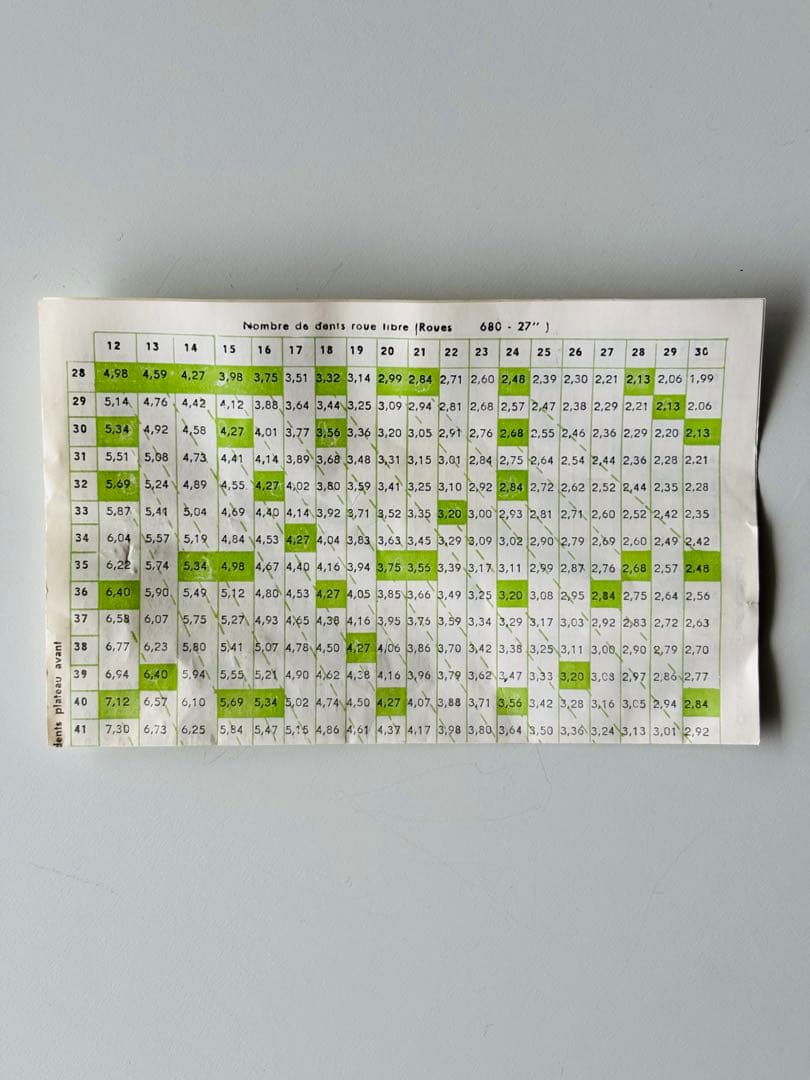 Nombre de dents roue libre (Roues 680 - 27″ )
12 13 14 15 16 17 18 19 20 21 22 23 24 25 26 27 28 29 30
28 4,98 4,59 4,27 3,98 3,75 3,51 3,32 3,14 2,99 2,84 2,71 2,60 2,48 2,39 2,30 2,21 2,13 2,06 1,99
29 5,14 4,76 4,42 4,12 3,88 3,64 3,44 3,25 3,09 2,94 2,81 2,68 2,57 2,47 2,38 2,29 2,21 2,13 2,06
30 5,34 4,92 4,58 4,27 4,01 3,77 3,56 3,36 3,20 3,05 2,91 2,76 2,68 2,55 2,46 2,36 2,29 2,20 2,13
31 5,51 5,08 4,73 4,41 4,14 3,89 3,68 3,48 3,31 3,15 3,01 2,84 2,75 2,64 2,54 2,44 2,36 2,28 2,21
32 5,69 5,24 4,89 4,55 4,27 4,02 3,80 3,59 3,41 3,25 3,10 2,92 2,84 2,72 2,62 2,52 2,44 2,35 2,28
33 5,87 5,41 5,04 4,69 4,40 4,14 3,92 3,71 3,52 3,35 3,20 3,00 2,93 2,81 2,71 2,60 2,52 2,42 2,35
34 6,04 5,57 5,19 4,84 4,53 4,27 4,04 3,83 3,63 3,45 3,29 3,09 3,02 2,90 2,79 2,69 2,60 2,49 2,42
35 6,22 5,74 5,34 4,98 4,67 4,40 4,16 3,94 3,75 3,56 3,39 3,17 3,11 2,99 2,87 2,76 2,68 2,57 2,48
36 6,40 5,90 5,49 5,12 4,80 4,53 4,27 4,05 3,85 3,66 3,49 3,25 3,20 3,08 2,95 2,84 2,75 2,64 2,56
37 6,58 6,07 5,75 5,27 4,93 4,65 4,38 4,16 3,95 3,76 3,59 3,34 3,29 3,17 3,03 2,92 2,83 2,72 2,63
38 6,77 6,23 5,80 5,41 5,07 4,78 4,50 4,27 4,06 3,86 3,70 3,42 3,38 3,25 3,11 3,00 2,90 2,79 2,70
39 6,94 6,40 5,94 5,55 5,21 4,90 4,62 4,38 4,16 3,96 3,79 3,62 3,47 3,33 3,20 3,08 2,97 2,86 2,77
40 7,12 6,57 6,10 5,69 5,34 5,02 4,74 4,50 4,27 4,07 3,88 3,71 3,56 3,42 3,28 3,16 3,05 2,94 2,84
41 7,30 6,73 6,25 5,84 5,47 5,15 4,86 4,61 4,37 4,17 3,98 3,80 3,64 3,50 3,36 3,24 3,13 3,01 2,92
dents plateau avant